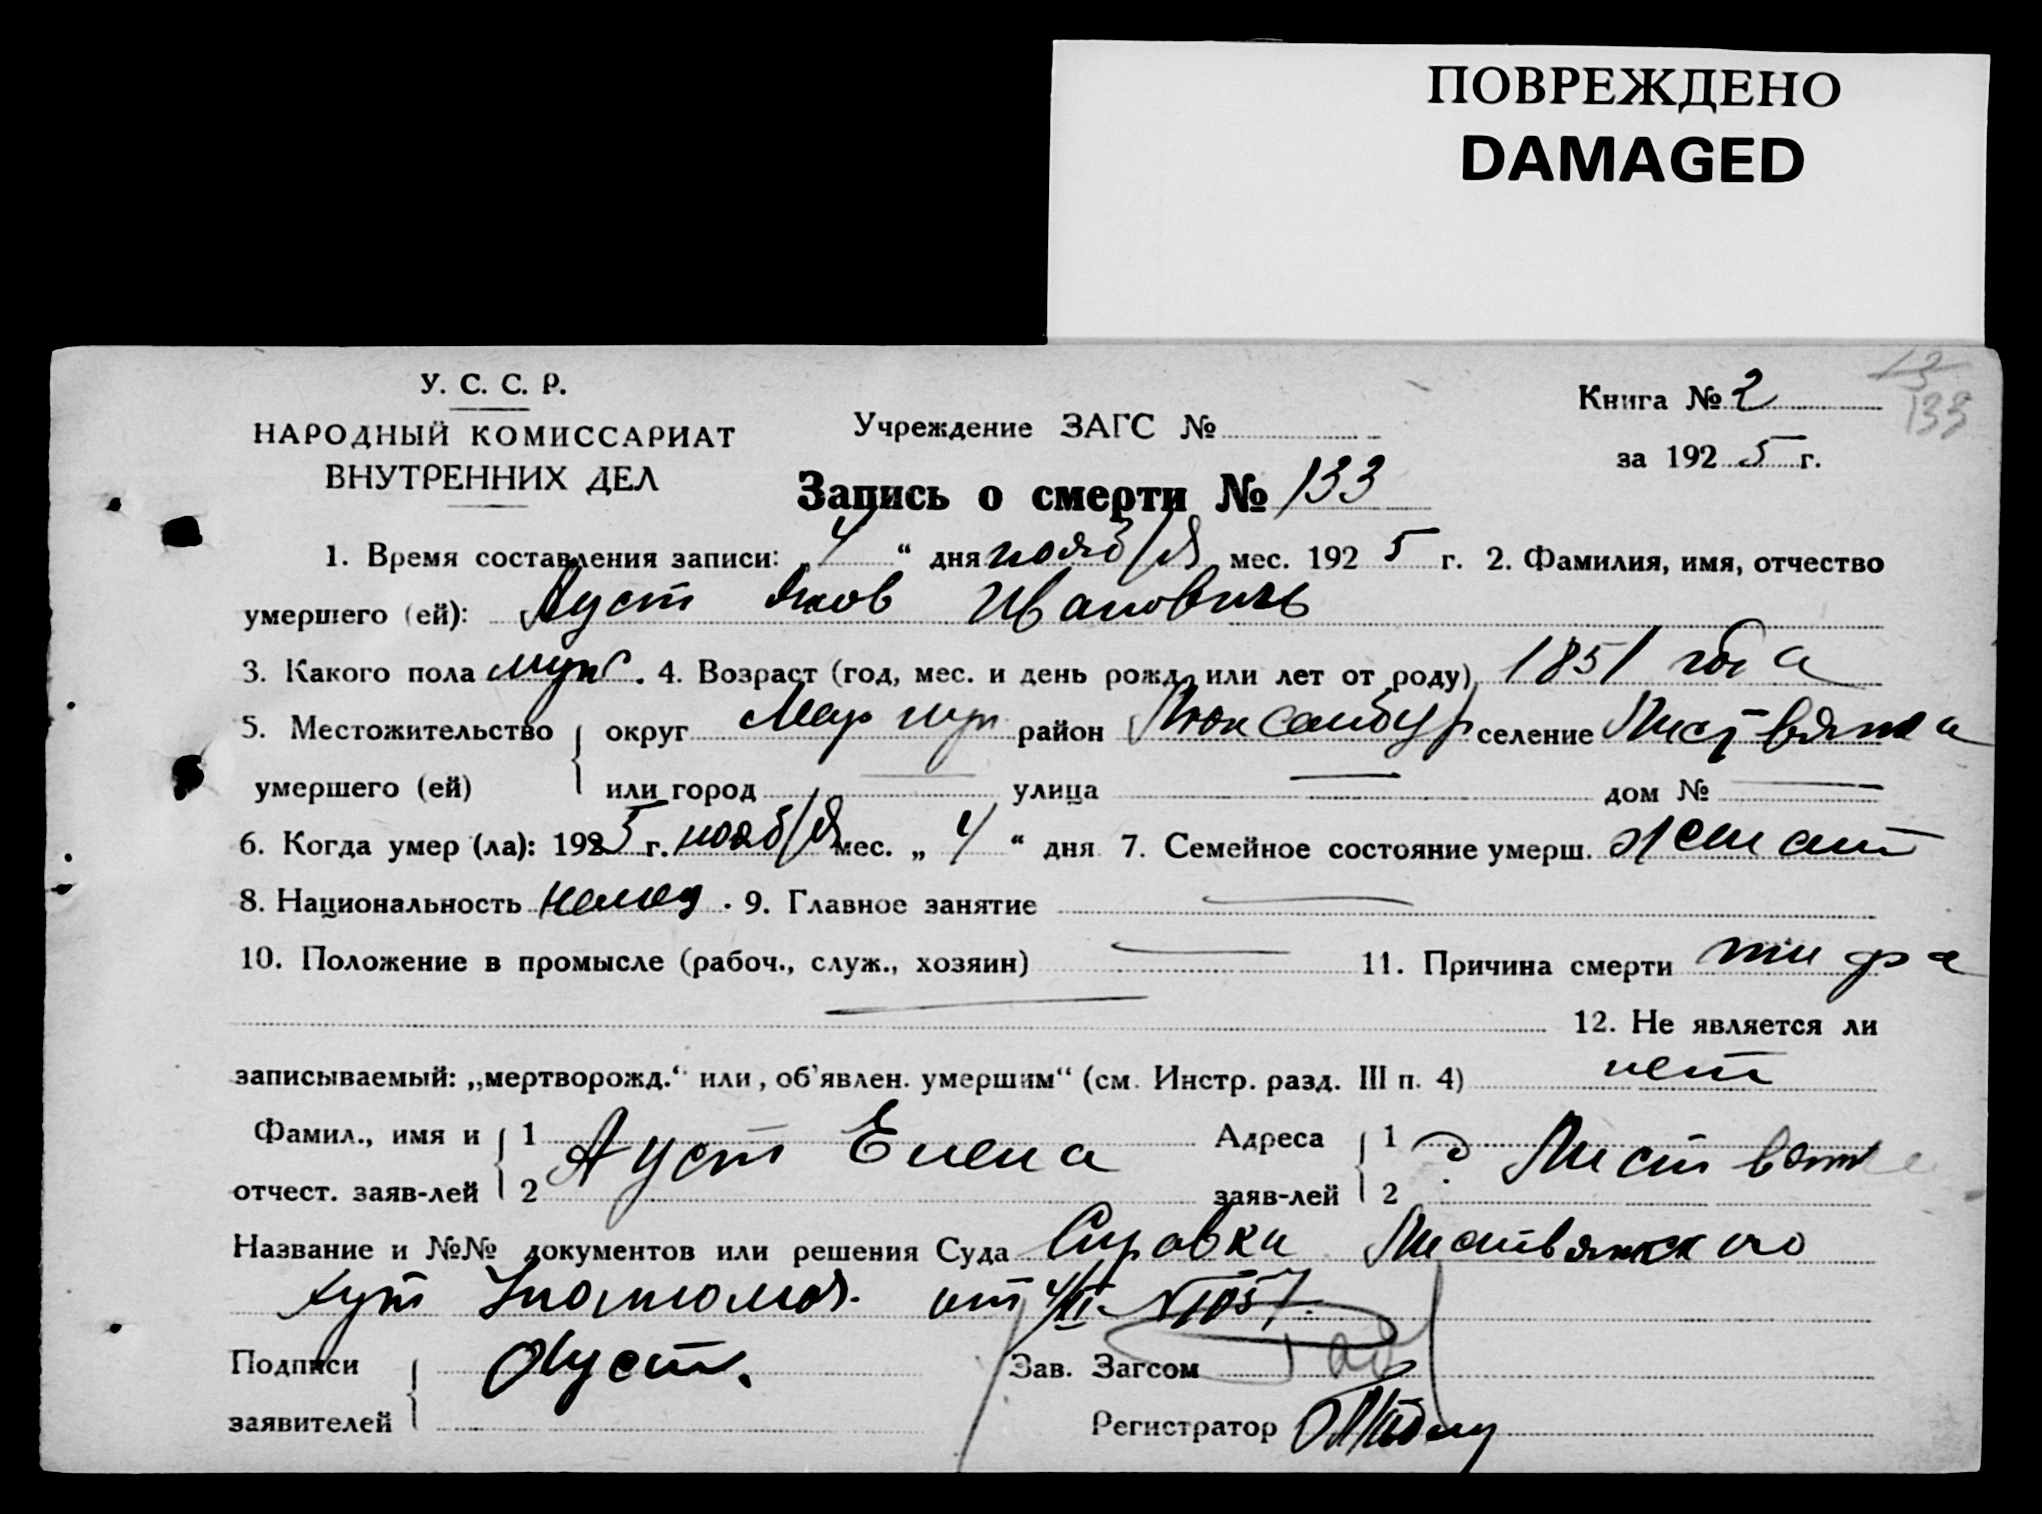 ПОВРЕЖДЕНО
DAMAGED
У. С. С. Р.
НАРОДНЫЙ КОМИССАРИАТ
ВНУТРЕННИХ ДЕЛ
Учреждение ЗАГС №
Книга № 2
133
за 1925 г.
Запись о смерти № 133
1. Время составления записи: „4“ дня нояб/я мес. 1925 г. 2. Фамилия, имя, отчество
умершего (ей): Ауст Яков Иванович
3. Какого пола муж. 4. Возраст (год, мес. и день рожд. или лет от роду) 1851 года
5. Местожительство округ Мариуп район Люксембур селение Листвянка
умершего (ей) или город — улица — дом № —
6. Когда умер (ла): 1925 г. нояб/я мес. „4“ дня 7. Семейное состояние умерш. женат
8. Национальность немец. 9. Главное занятие —
10. Положение в промысле (рабоч., служ., хозяин) — 11. Причина смерти тифа
— 12. Не является ли
записываемый: „мертворожд.“ или „об'явлен. умершим“ (см. Инстр. разд. III п. 4) нет
Фамил., имя и 1 Ауст Елена Адреса 1 Листвянка
отчест. заяв-лей 2 заяв-лей 2
Название и №№ документов или решения Суда Справка Листвянского
от 4/XI № 1057.
Подписи Ауст. Зав. Загсом
заявителей Регистратор